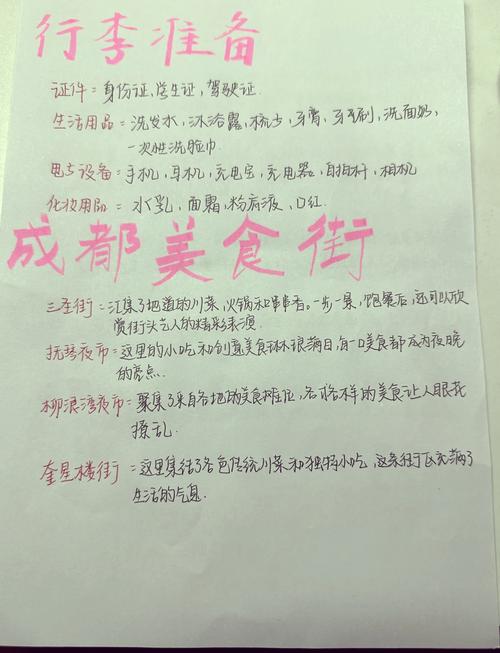 行李准备
证件：身份证，学生证，驾驶证.
生活用品：洗发水，沐浴露，梳子，牙膏，牙刷，洗面奶，
一次性洗脸巾
电子设备：手机，耳机，充电宝，充电器，自拍杆，相机
化妆用品：水乳，面霜，粉底液，口红.
成都美食街
三圣街：汇集了地道的川菜，火锅和串串香。一步一景，饱餐后，还可以欣
赏街头艺人的精彩表演
抚琴夜市：这里的小吃和创意美食琳琅满目，每一口美食都成为夜晚
的亮点.
柳浪湾夜市：聚集了来自各地的美食摊位，各式各样的美食让人眼花
撩乱.
奎星楼街：这里集结了各色传统川菜和独特小吃，这条街区充满了
生活的气息.